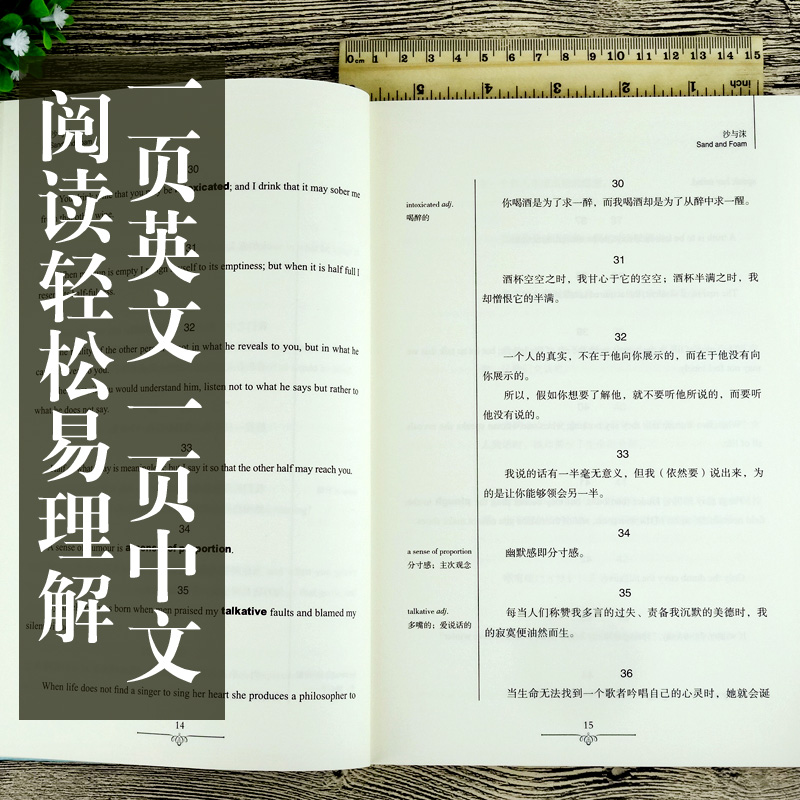 一页英文一页中文
阅读轻松易理解
0cm 1 2 3 4 5 6 7 8 9 10 11 12 13 14 15
5 4 3 2 1 inch
30
intoxicated; and I drink that it may sober me
31
is empty I to its emptiness; but when it is half full I
32
of the other person is not in what he reveals to you, but in what he
you.
you would understand him, listen not to what he says but rather to
what he does not say.
33
say is meaningless; but I say it so that the other half may reach you.
34
A sense of humour is a sense of proportion.
35
born when men praised my talkative faults and blamed my
silent
When life does not find a singer to sing her heart she produces a philosopher to
14
沙与沫
Sand and Foam
intoxicated adj.
喝醉的
30
你喝酒是为了求一醉，而我喝酒却是为了从醉中求一醒。
31
酒杯空空之时，我甘心于它的空空；酒杯半满之时，我
却憎恨它的半满。
32
一个人的真实，不在于他向你展示的，而在于他没有向
你展示的。
所以，假如你想要了解他，就不要听他所说的，而要听
他没有说的。
33
我说的话有一半毫无意义，但我（依然要）说出来，为
的是让你能够领会另一半。
a sense of proportion
分寸感；主次观念
34
幽默感即分寸感。
talkative adj.
多嘴的；爱说话的
35
每当人们称赞我多言的过失、责备我沉默的美德时，我
的寂寞便油然而生。
36
当生命无法找到一个歌者吟唱自己的心灵时，她就会诞
15